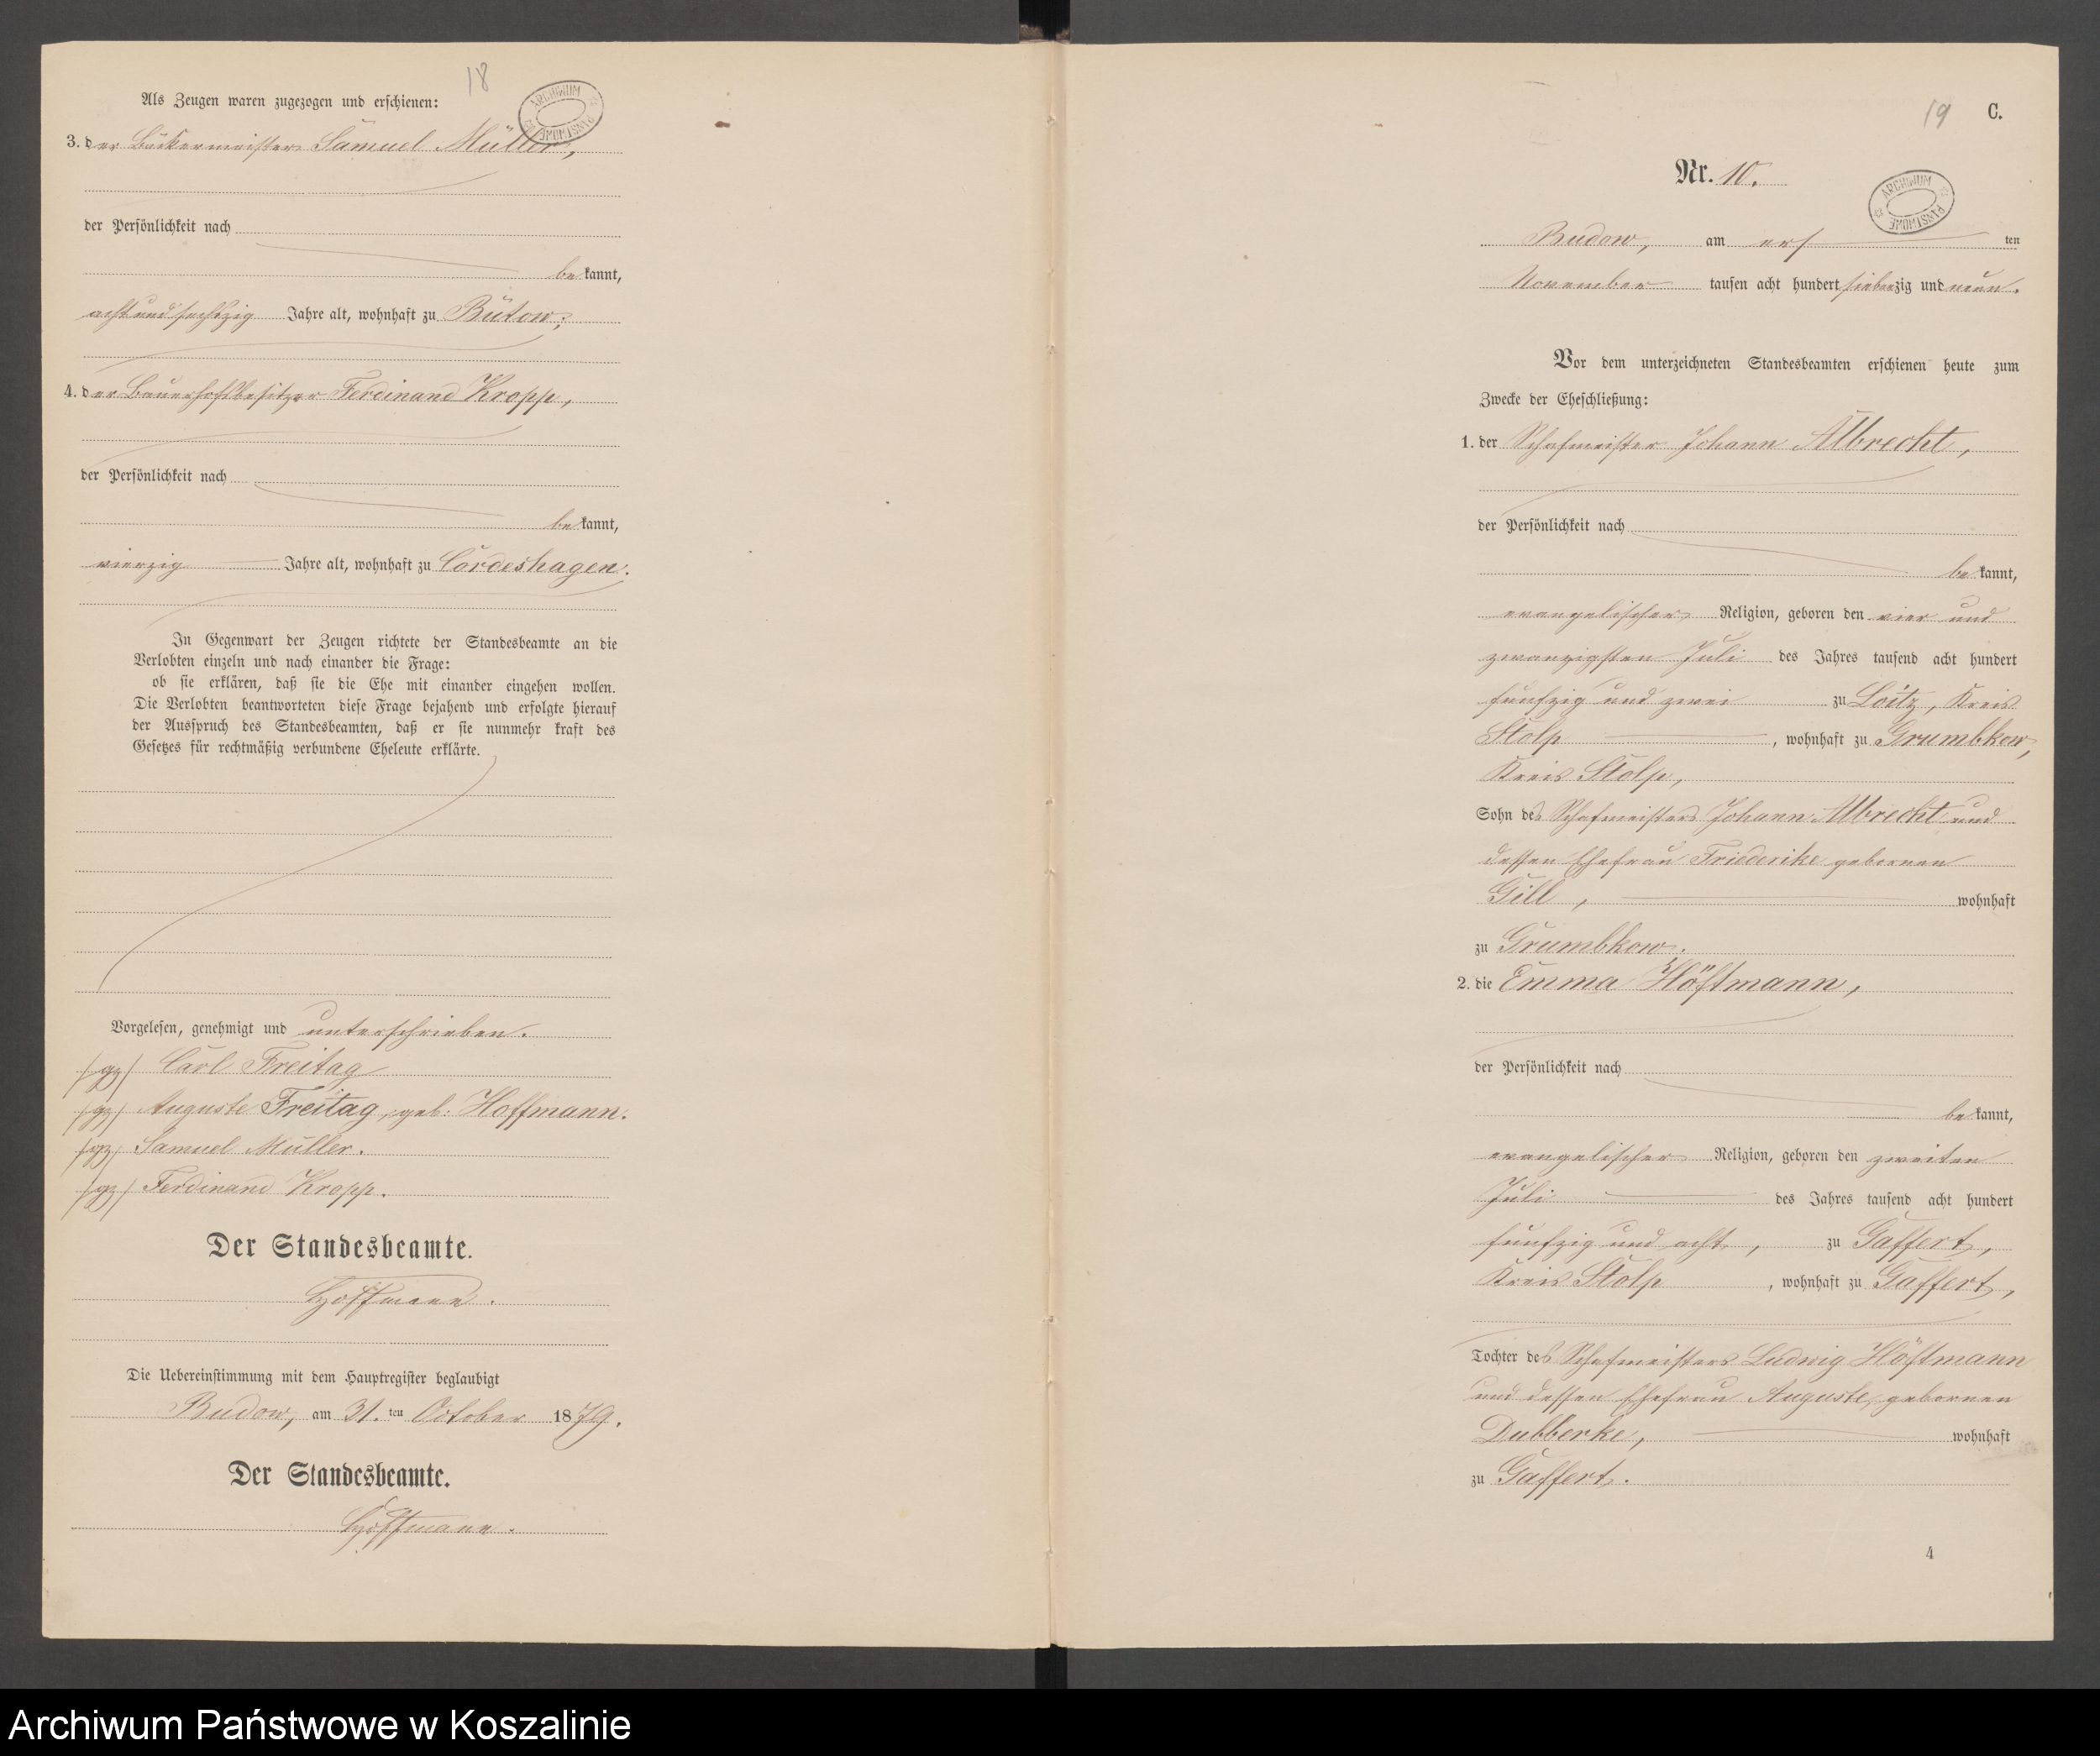 18
Als Zeugen waren zugezogen und erschienen:
ARCHIWUM PAŃSTWOWE
3. der Bäckermeister Samuel Müller,
der Persönlichkeit nach
bekannt,
acht und sechszig Jahre alt, wohnhaft zu Bütow;
4. der Bauerhofsbesitzer Ferdinand Kropp,
der Persönlichkeit nach
bekannt,
vierzig Jahre alt, wohnhaft zu Cördeshagen.
In Gegenwart der Zeugen richtete der Standesbeamte an die
Verlobten einzeln und nach einander die Frage:
ob sie erklären, daß sie die Ehe mit einander eingehen wollen.
Die Verlobten beantworteten diese Frage bejahend und erfolgte hierauf
der Ausspruch des Standesbeamten, daß er sie nunmehr kraft des
Gesetzes für rechtmäßig verbundene Eheleute erklärte.
Vorgelesen, genehmigt und unterschrieben.
/gz/ Carl Freitag
/gz/ Auguste Freitag, geb. Hoffmann.
/gz/ Samuel Müller.
/gz/ Ferdinand Kropp.
Der Standesbeamte.
Hoffmann.
Die Uebereinstimmung mit dem Hauptregister beglaubigt
Budow, am 31. ten October 1879.
Der Standesbeamte.
Hoffmann.
19 C.
Nr. 10.
ARCHIWUM PAŃSTWOWE
Budow, am ersten
November tausen acht hundert siebenzig und neun.
Vor dem unterzeichneten Standesbeamten erschienen heute zum
Zwecke der Eheschließung:
1. der Schafmeister Johann Albrecht,
der Persönlichkeit nach
bekannt,
evangelischer Religion, geboren den vier und
zwanzigsten Juli des Jahres tausend acht hundert
funfzig und zwei zu Loitz, Kreis
Stolp, wohnhaft zu Grumbkow,
Kreis Stolp,
Sohn des Schafmeisters Johann Albrecht und
dessen Ehefrau Friederike gebornen
Gill, wohnhaft
zu Grumbkow.
2. die Emma Höftmann,
der Persönlichkeit nach
bekannt,
evangelischer Religion, geboren den zweiten
Juli des Jahres tausend acht hundert
funfzig und acht, zu Gaffert,
Kreis Stolp, wohnhaft zu Gaffert,
Tochter des Schafmeisters Ludwig Höftmann
und dessen Ehefrau Auguste, gebornen
Dubberke, wohnhaft
zu Gaffert.
4
Archiwum Państwowe w Koszalinie